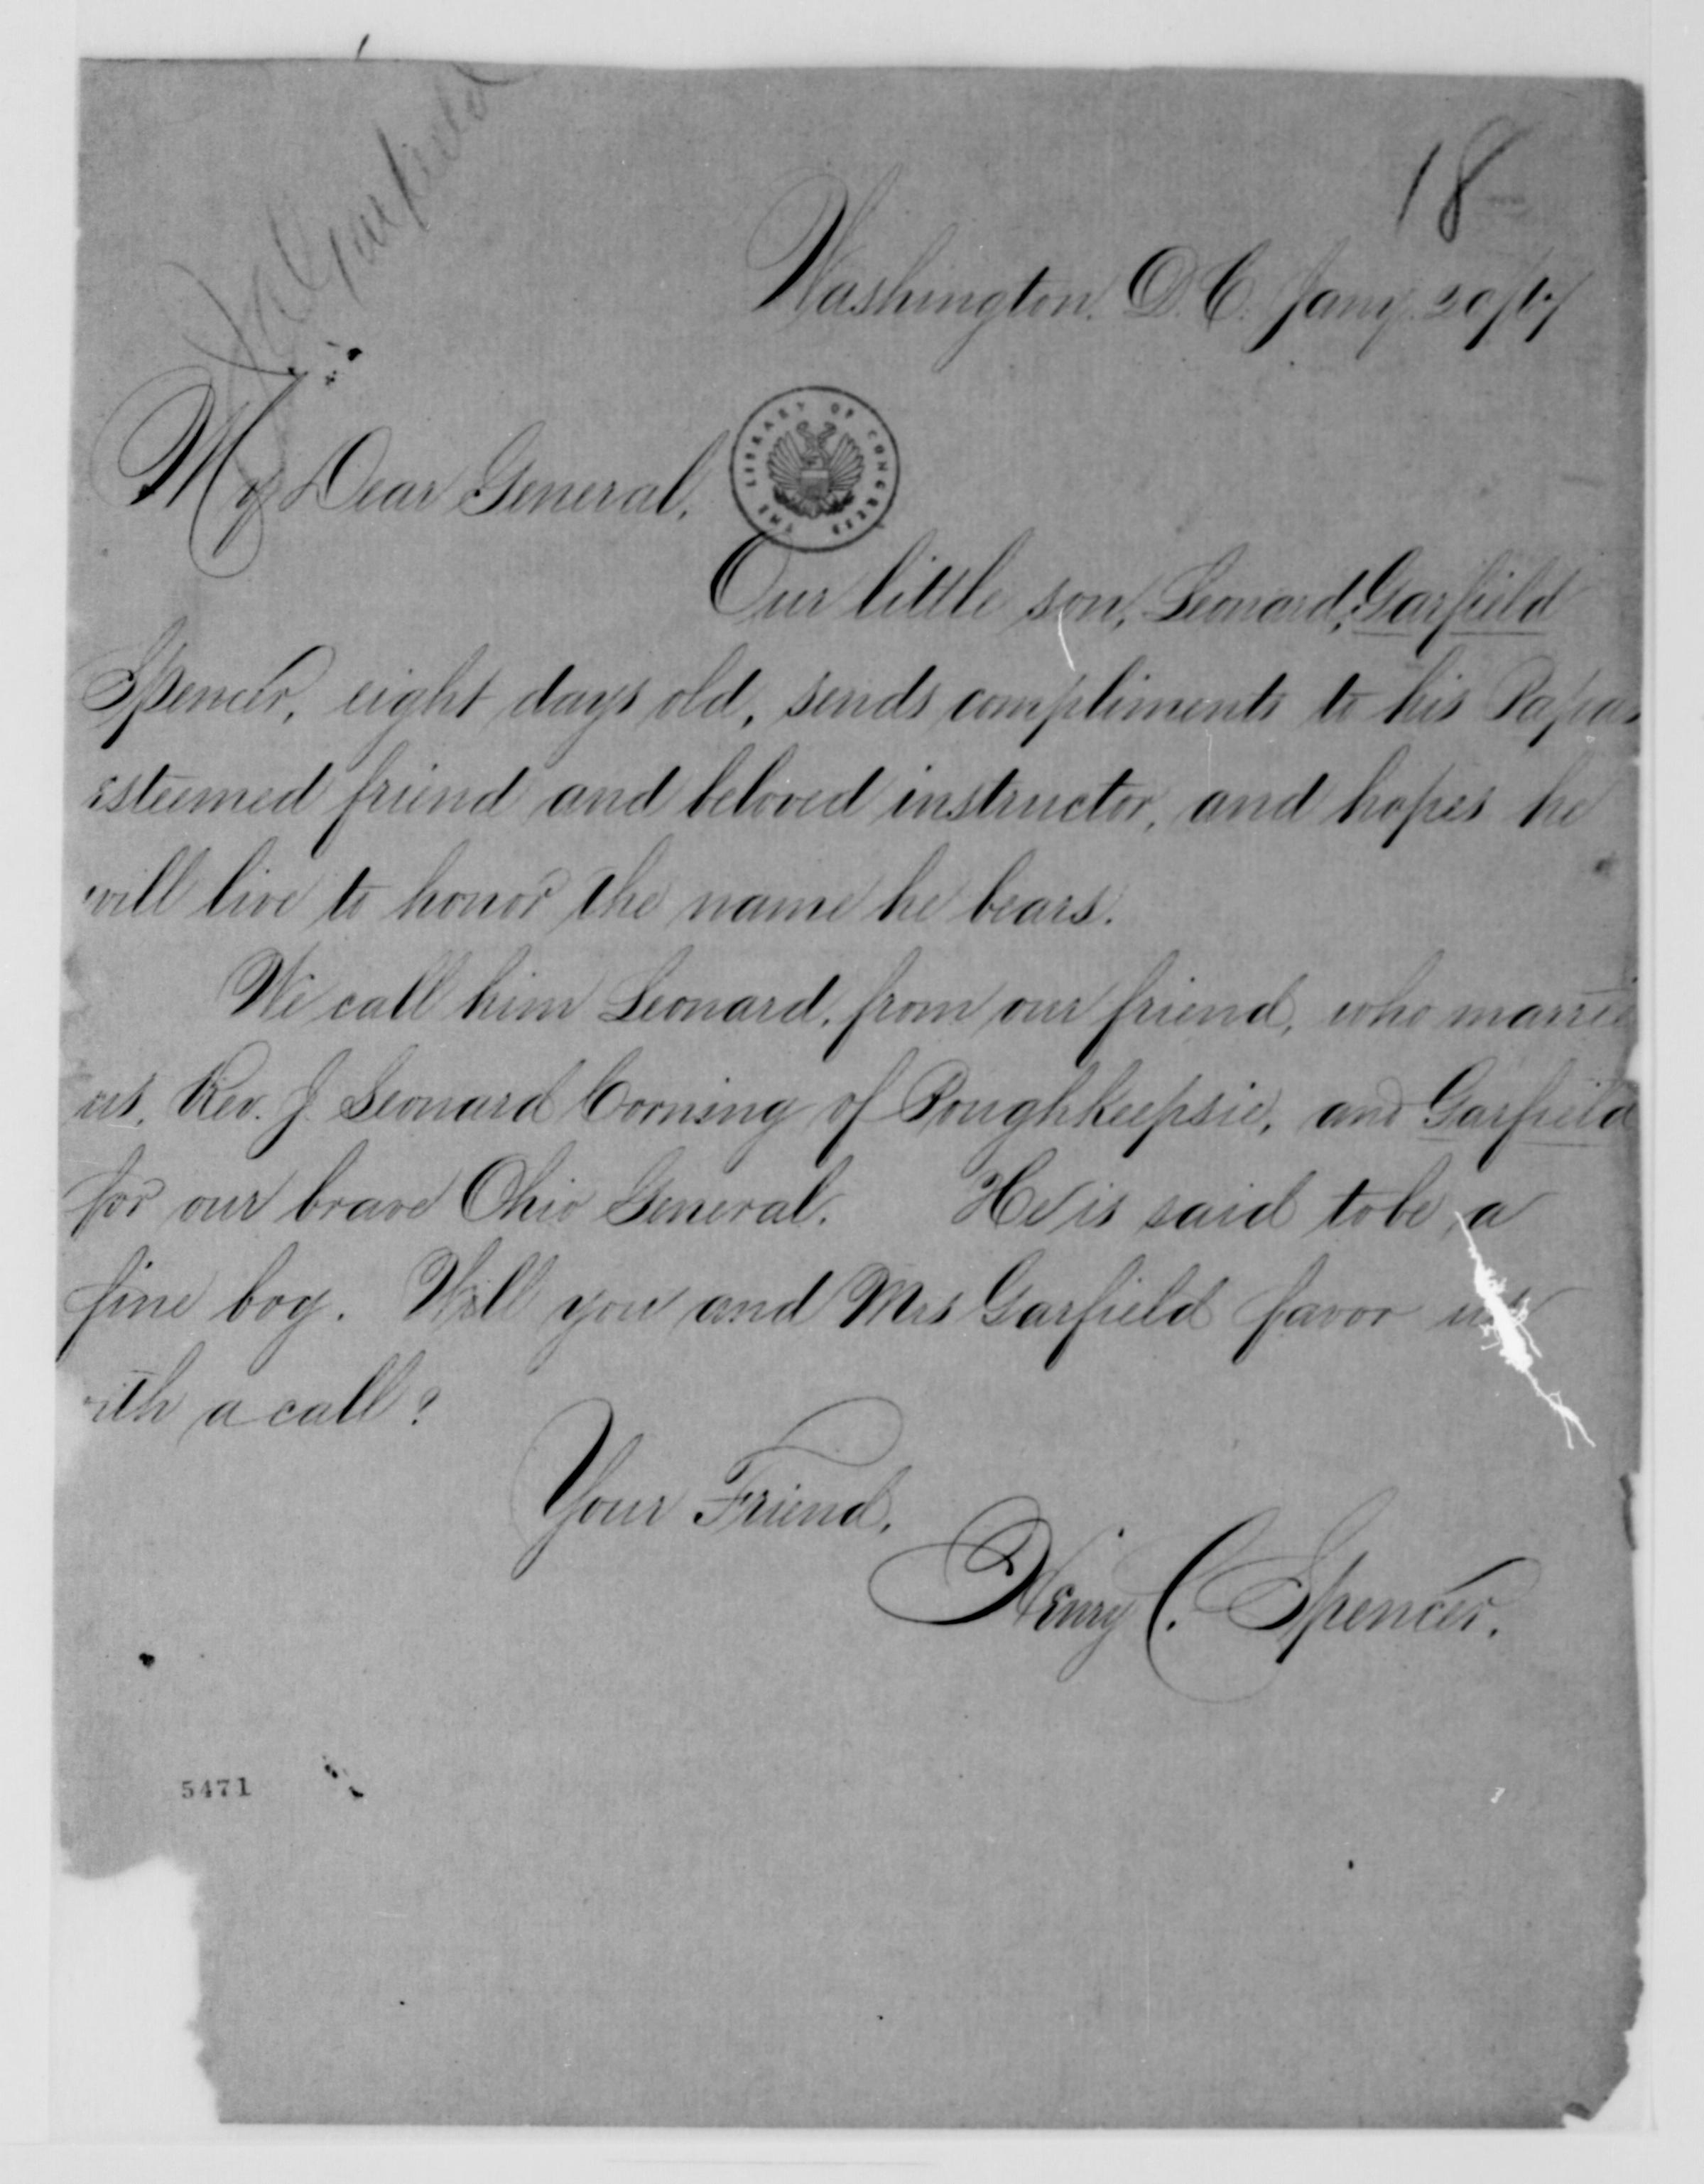 J A Garfield
18
Washington. D.C. Jany. 20/67
My Dear General,
THE LIBRARY OF CONGRESS
Our little son, Leonard, Garfield
Spencer, eight days old, sends compliments to his Papas
esteemed friend and beloved instructor, and hopes he
will live to honor the name he bears.
We call him Leonard, from our friend, who marrie
us, Rev. J. Leonard Corning of Poughkeepsie, and Garfield
for our brave Ohio General. He is said to be a
fine boy. Will you and Mrs Garfield favor us
ith a call?
Your Friend,
Henry C. Spencer.
5471